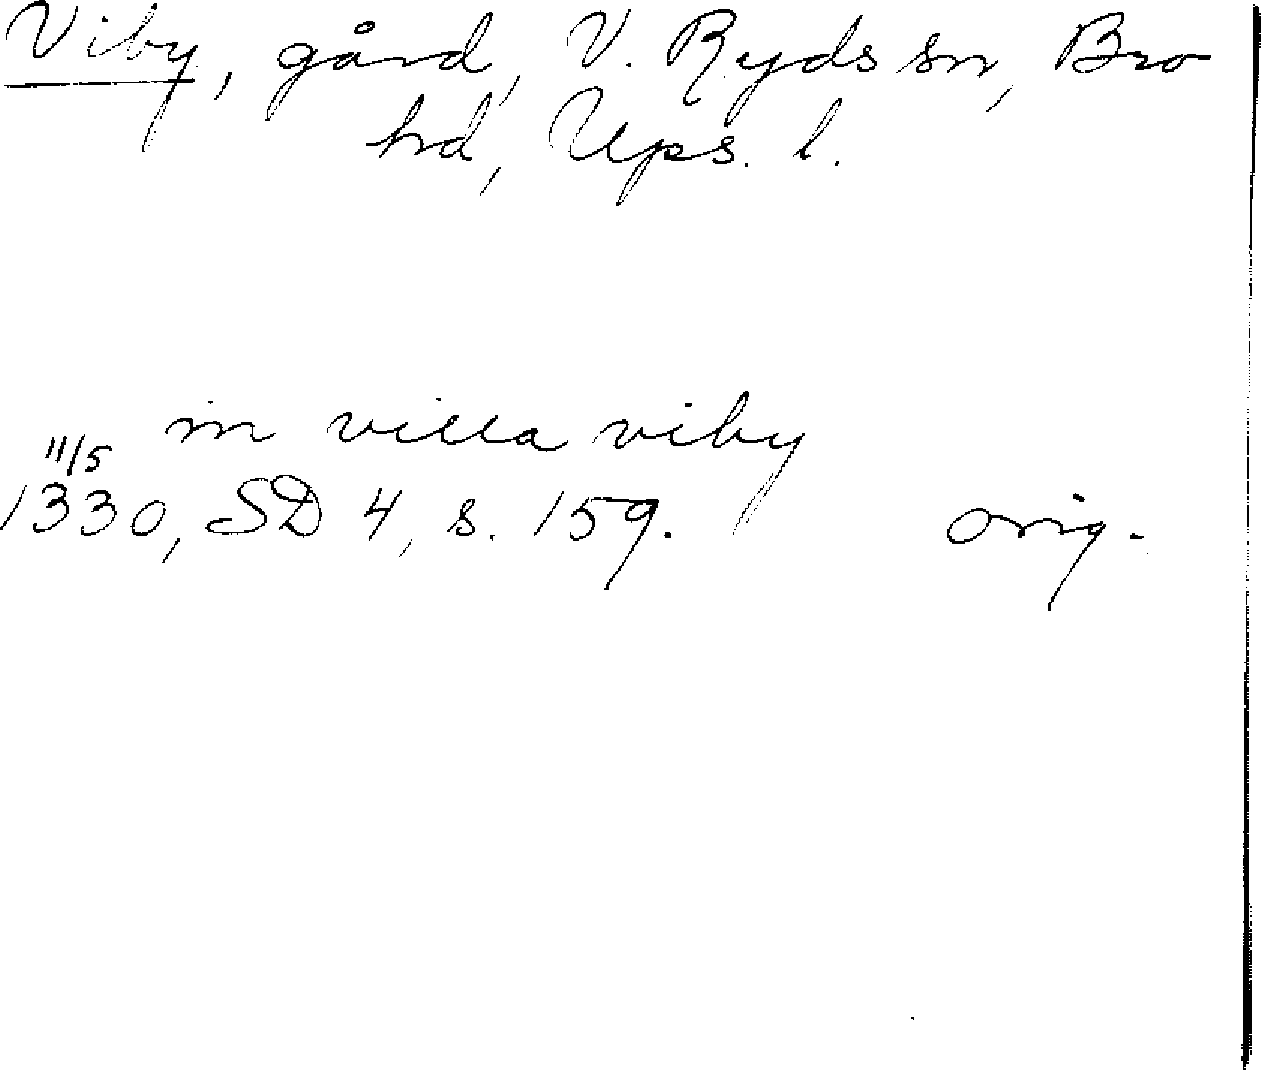 Viby, gård, V. Ryds sn, Bro
hd, Ups. l.
in villa viby
11/5
1330, SD 4, s. 159. orig.